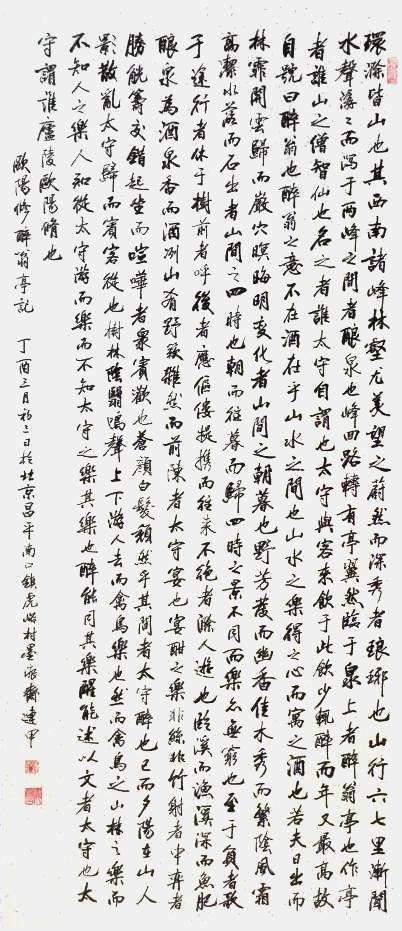 環滁皆山也其西南諸峰林壑尤美望之蔚然而深秀者琅琊也山行六七里漸聞
水聲潺々而瀉于兩峰之間者釀泉也峰回路轉有亭翼然臨于泉上者醉翁亭也作亭
者誰山之僧智仙也名之者誰太守自謂也太守與客來飲于此飲少輒醉而年又最高故
自號曰醉翁也醉翁之意不在酒在乎山水之間也山水之樂得之心而寓之酒也若夫日出而
林霏開雲歸而巖穴暝晦明變化者山間之朝暮也野芳發而幽香佳木秀而繁陰風霜
高潔水落而石出者山間之四時也朝而往暮而歸四時之景不同而樂亦無窮也至于負者歌
于途行者休于樹前者呼後者應傴僂提攜而往来不絕者滁人遊也臨溪而漁溪深而魚肥
釀泉為酒泉香而酒冽山肴野蔌雜然而前陳者太守宴也宴酣之樂非絲非竹射者中弈者
勝觥籌交錯起坐而喧嘩者衆賓歡也蒼顏白髮頹然乎其間者太守醉也已而夕陽在山人
影散亂太守歸而賓客從也樹林陰翳鳴聲上下游人去而禽鳥樂也然而禽鳥之山林之樂而
不知人之樂人知從太守游而樂而不知太守之樂其樂也醉能同其樂醒能述以文者太守也太
守謂誰廬陵歐陽脩也
歐陽修醉翁亭記 丁酉三月初三日於北京昌平南口鎮虎峪村墨齋建甲